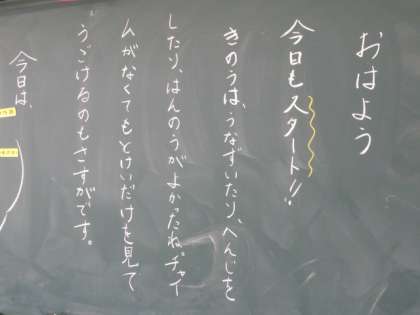 おはよう
今日もスタート!!
きのうは、うなずいたり、へんじを
したり、はんのうがよかったね。チャイ
ムがなくてもとけいだけを見て
うごけるのもさすがです。
今日は、